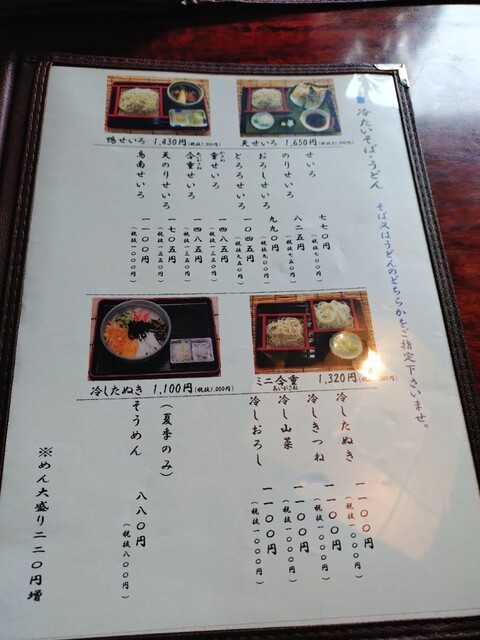 冷たいそば・うどん
そば又はうどんのどちらかをご指定下さいませ。
鴨せいろ 1,430円(税抜1,300円)
天せいろ 1,650円(税抜1,500円)
せいろ 七七〇円(税抜七〇〇円)
のりせいろ 八二五円(税抜七五〇円)
おろしせいろ 九九〇円(税抜九〇〇円)
とろろせいろ 一〇四五円(税抜九五〇円)
重せいろ 一四八五円(税抜一三五〇円)
合重せいろ 一四八五円(税抜一三五〇円)
天のりせいろ 一七〇五円(税抜一五五〇円)
鳥南せいろ 一一〇〇円(税抜一〇〇〇円)
冷したぬき 1,100円(税抜1,000円)
ミニ合重 1,320円
あいがさね
冷したぬき 一一〇〇円(税抜一〇〇〇円)
冷しきつね 一一〇〇円(税抜一〇〇〇円)
冷し山菜 一一〇〇円(税抜一〇〇〇円)
冷しおろし 一一〇〇円(税抜一〇〇〇円)
(夏季のみ)
そうめん 八八〇円(税抜八〇〇円)
※めん大盛り二二〇円増